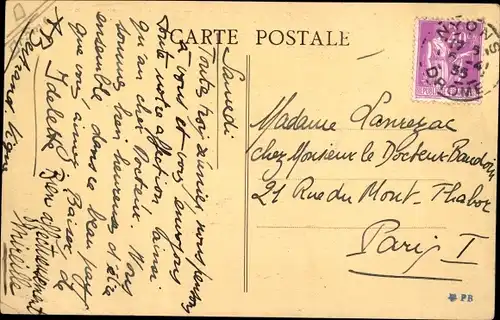 CARTE POSTALE
NYONS
DROME
35
Samedi
Toutes trois réunies, nous pensons
à vous et vous envoyons
toute notre affection ainsi
qu'au cher Docteur. Nous
sommes bien heureuses d'être
ensemble dans ce beau pays
que vous aimez. Baisers de
Idelette
Bien affectueusement
Mireille
Madame Lanrezac
chez Monsieur le Docteur Baudouin
21 Rue du Mont-Thabor
Paris I
PB